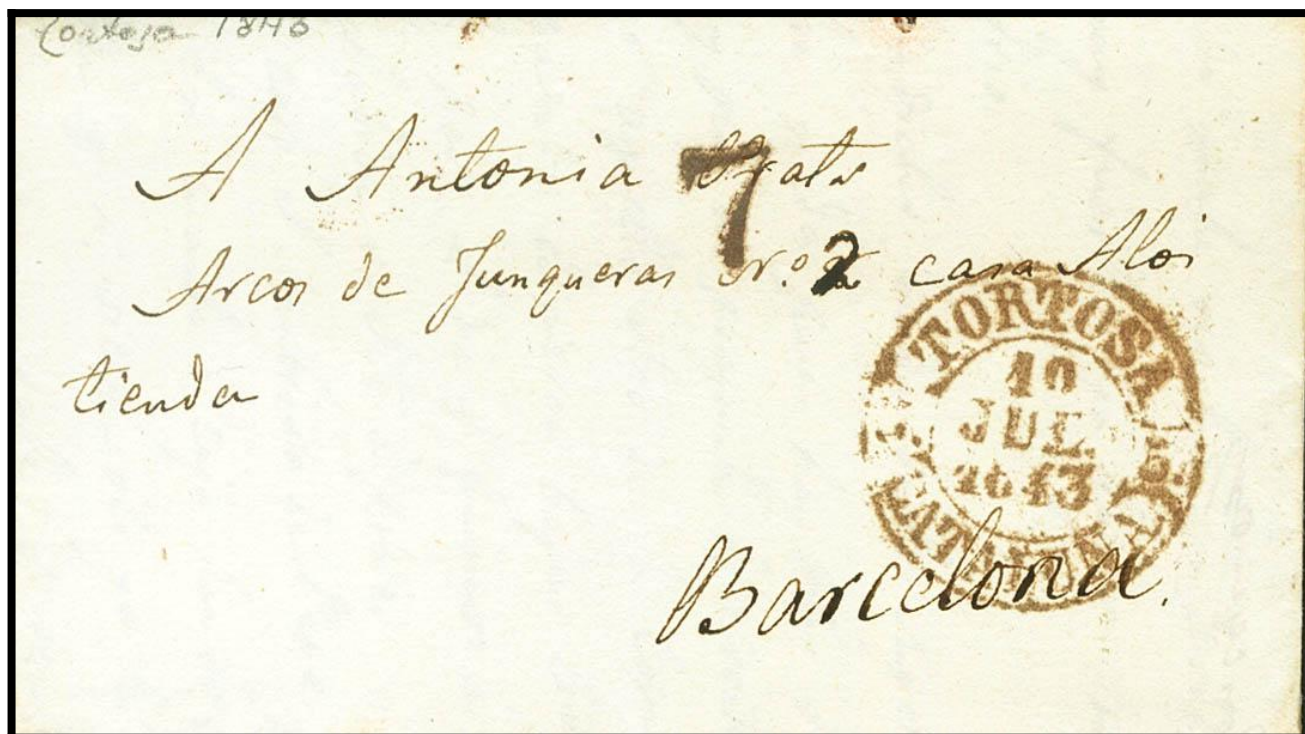 Tortosa 1843
A Antonia Prats
7
Arcos de Junqueras Nº. 2 casa Aloi
tienda
TORTOSA
10
JUL.
1843
CATALUÑA
Barcelona.